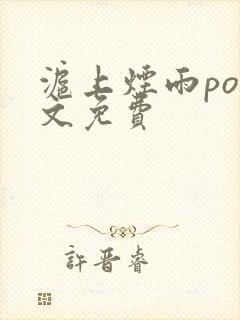 滬上煙雨po
文免費
許晋睿